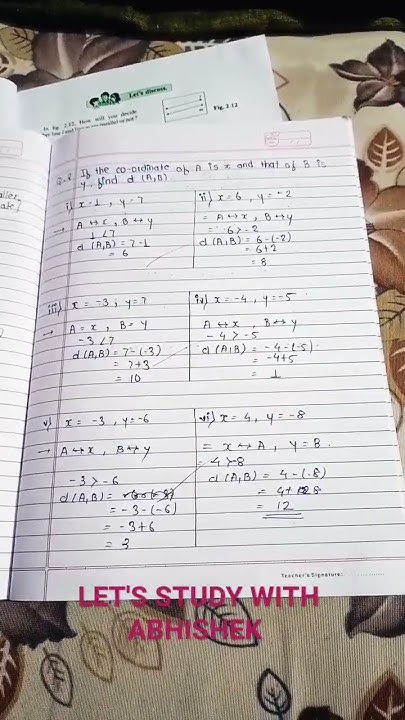 Let's discuss.
In fig. 2.12, How will you decide
Fig. 2.12
If the co-ordinate of A is x and that of B is
y find d (A,B)
i) x=1, y=7
→ A↔x, B↔y
1<7
d(A,B) = 7-1
= 6
ii) x=6, y=-2
= A↔x, B↔y
= 6>-2
d(A,B) = 6-(-2)
= 6+2
= 8
iii) x = -3, y=7
→ A=x, B=y
-3<7
d(A,B) = 7-(-3)
= 7+3
= 10
iv) x=-4, y=-5
A↔x, B↔y
-4>-5
d(A,B) = -4-(-5)
= -4+5
= 1
v) x = -3, y=-6
→ A↔x, B↔y
-3>-6
d(A,B) =
= -3-(-6)
= -3+6
= 3
vi) x=4, y=-8
= x↔A, y=B.
= 4>-8
d(A,B) = 4-(-8)
= 4+8
= 12
Teacher's Signature:
LET'S STUDY WITH
ABHISHEK